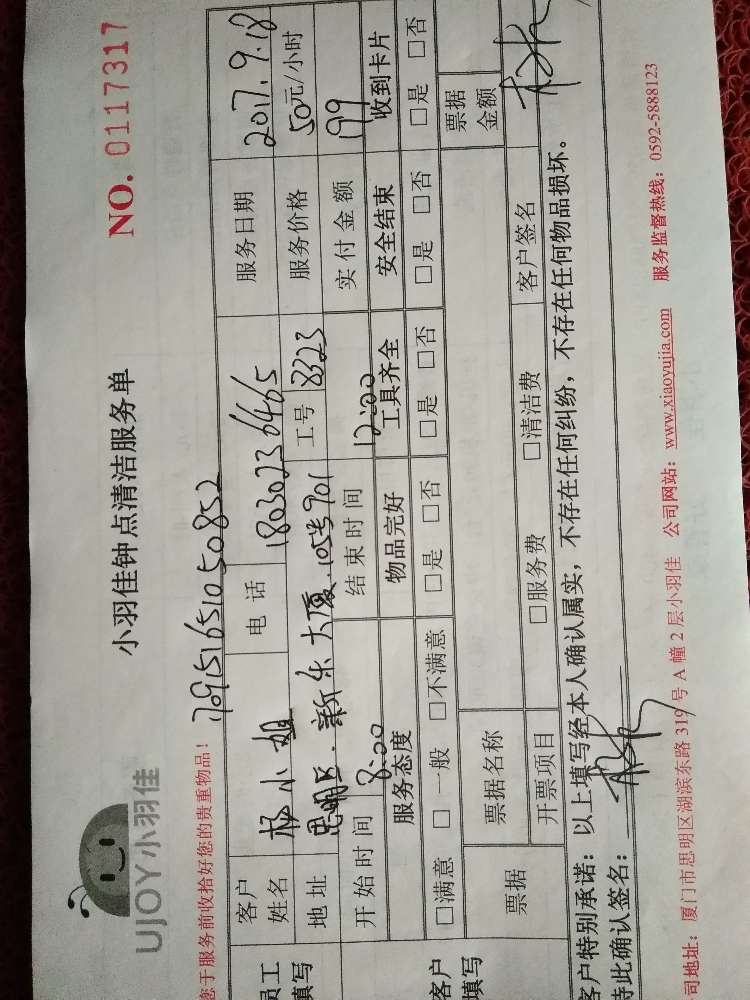 UJOY小羽佳
小羽佳钟点清洁服务单
NO. 0117317
您于服务前收拾好您的贵重物品！
员工填写
客户姓名 杨小姐 电 话 18030236465 服务日期 2017.9.18
地 址 思明区.新乐大厦.105号701 工号 8323 服务价格 50元/小时
开 始 时 间 8:00 结 束 时 间 12:00 实 付 金 额 199
客户填写
服务态度 物品完好 工具齐全 安全结束 收到卡片
□满意 □一般 □不满意 □是 □否 □是 □否 □是 □否 □是 □否
票据 票据名称 票据金额
开票项目 □服务费 □清洁费 客户签名
客户特别承诺：以上填写经本人确认属实，不存在任何纠纷，不存在任何物品损坏。
特此确认签名：
司地址：厦门市思明区湖滨东路 319 号 A 幢 2 层小羽佳 公司网站：www.xiaoyujia.com 服务监督热线：0592-5888123